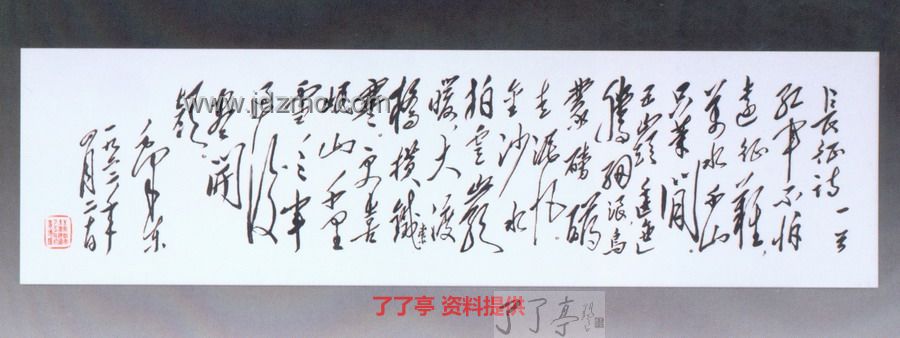 長征詩一首
紅軍不怕
遠征難,
萬水千山
只等閒。
五嶺逶迤
騰細浪,烏
蒙磅礴
走泥丸。
金沙水
拍雲崖
暖,大渡
橋橫鐵索
寒。更喜
岷山千里
雪,三軍
過後
盡開
顏。
毛澤東
一九六二年
四月二十日
www.jdzmc.com
了了亭 资料提供
了了亭